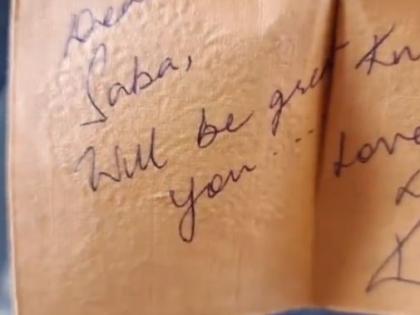 Dear
Saba,
Will be great Kn
you... Love